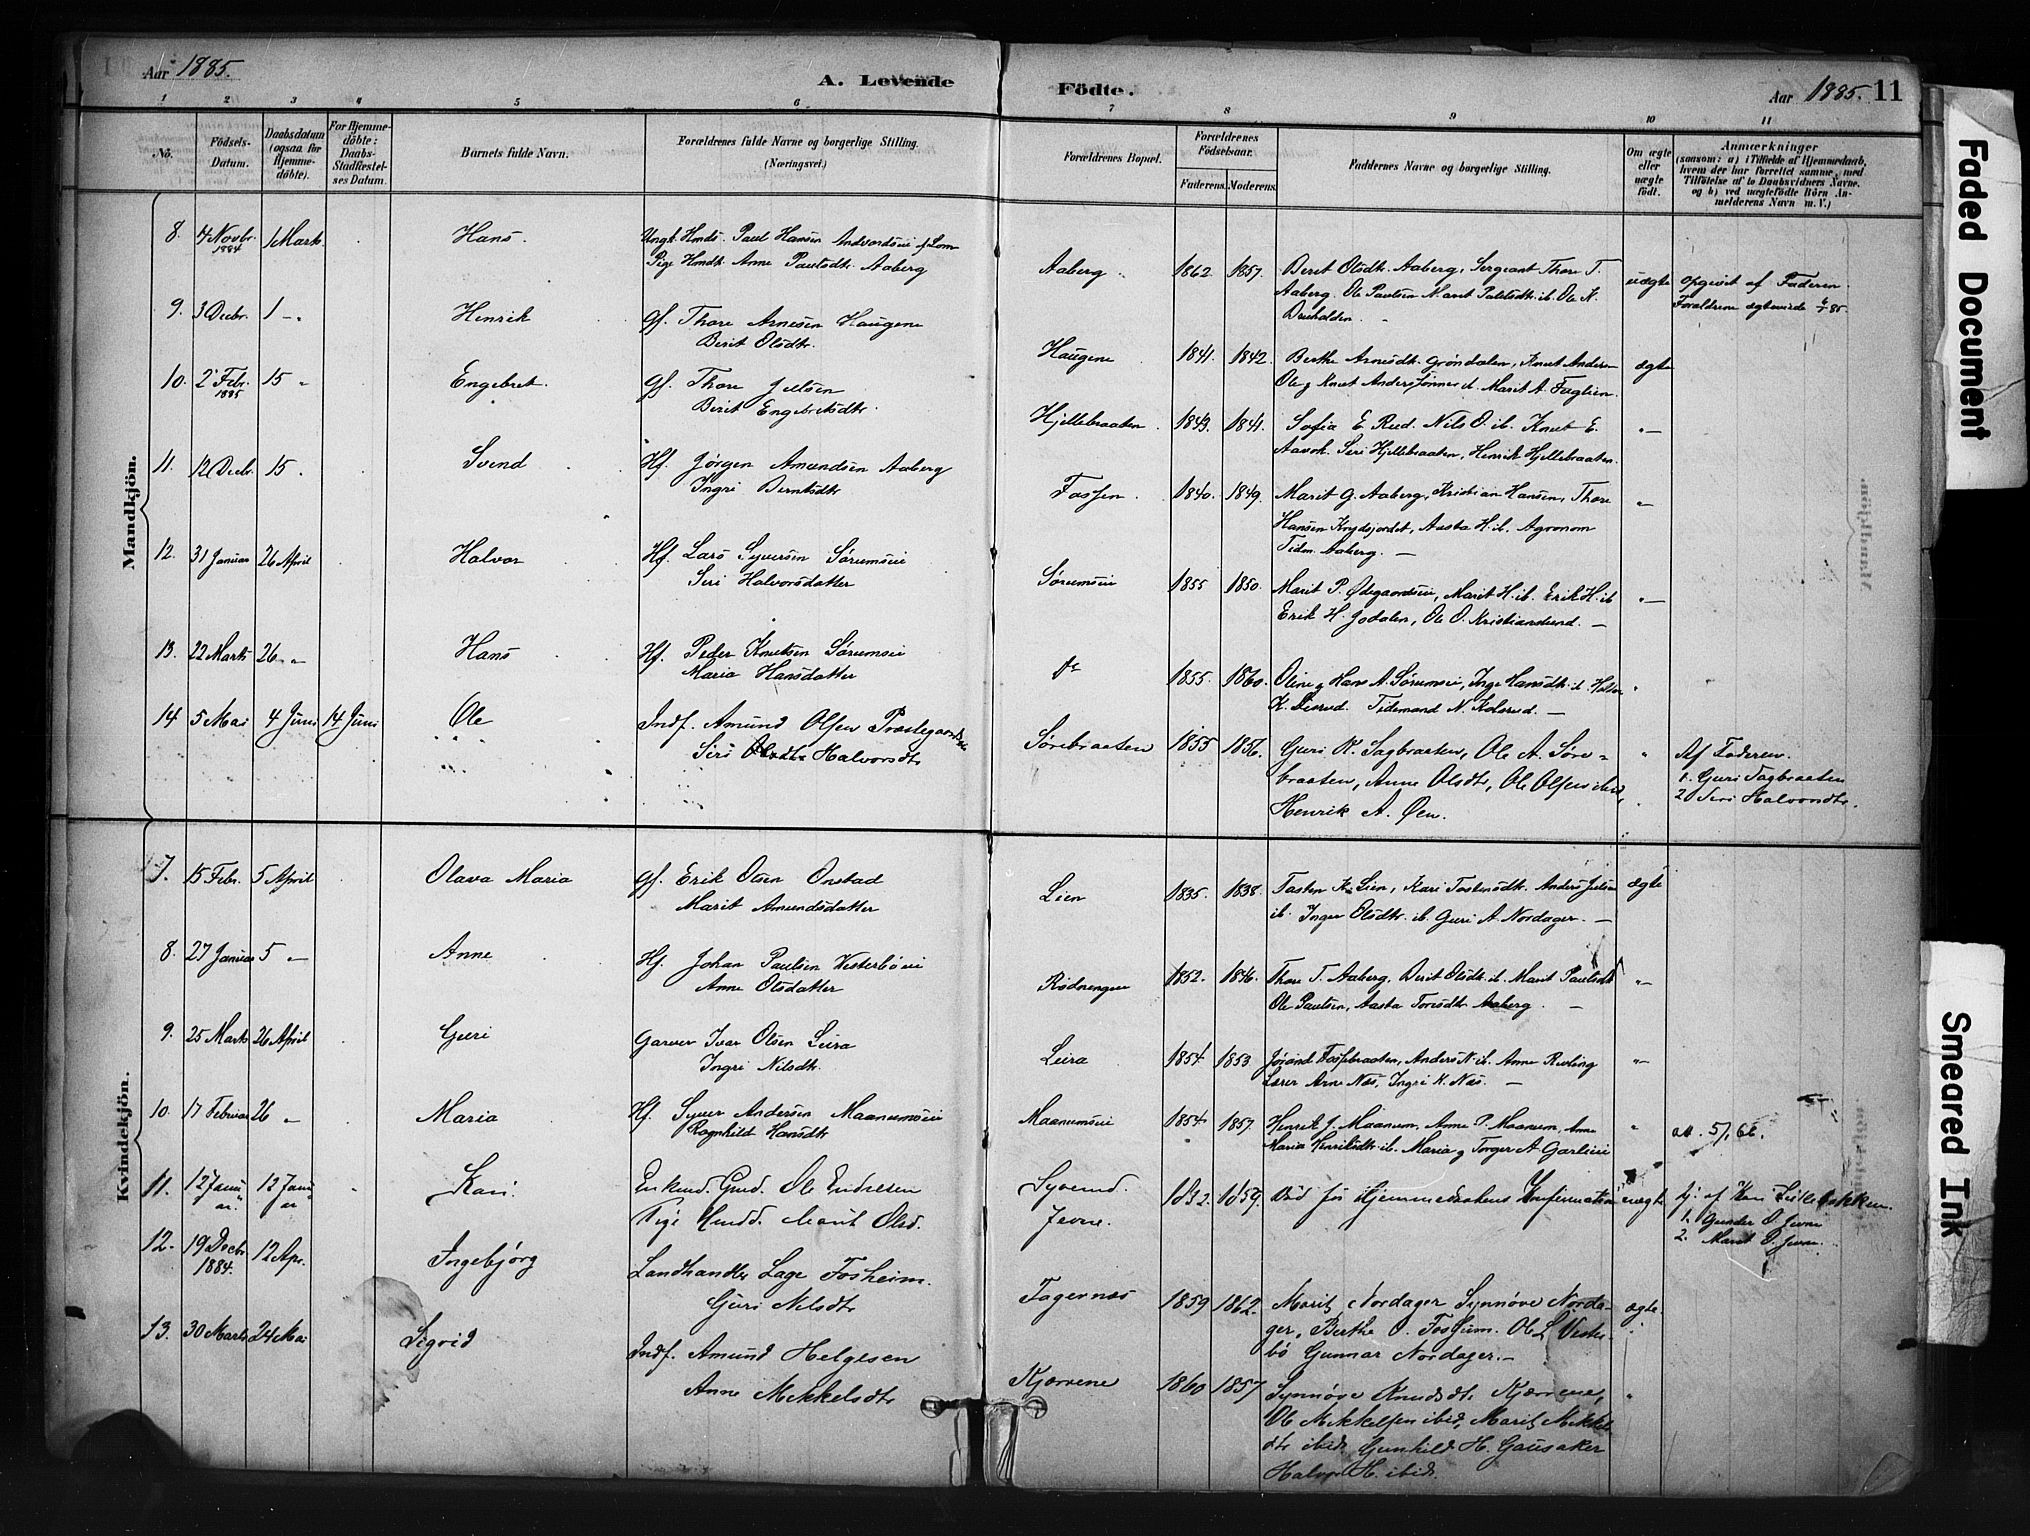 Aar 1885.
A. Levende
Födte.
Aar 1885. 11
1 2 3 4 5 6 7 8 9 10 11
No.
Födsels-Datum.
Daabsdatum (ogsaa for Hjemme-döbte).
For Hjemme-döbte: Daabs-Stadfæstel-ses Datum.
Barnets fulde Navn.
Forældrenes fulde Navne og borgerlige Stilling.
(Næringsvei.)
Forældrenes Bopæl.
Forældrenes Födselsaar.
Faderens. Moderens.
Faddernes Navne og borgerlige Stilling.
Om ægte eller uægte födt.
Anmærkninger
(saasom: a) i Tilfælde af Hjemmedaab,
hvem der har forrettet samme, med
Tilföielse af to Daabsvidners Navne,
og b) ved uægtefödte Börn An-
melderens Navn m. V.)
Mandkjön.
8. 4 Novbr. 1884 1 Marts Hans. Ungk. Hmds. Paul Hansen Andvordseie f Lom
Pige Hmdt. Anne Paulsdt. Aaberg
Aaberg 1862. 1857. Berit Olsdt. Aaberg, Sergeant Thore T.
Aaberg. Ole Paulsen Marit Paulsdt. ib. Ole K.
uægte opgivet af Faderen.
Forældrene ægteviede 85.
9. 3 Decbr. 1 -"- Henrik Gf. Thore Arnesen Haugene
Berit Olsdtr.
Haugene 1841. 1842. Berthe Arnesdt. Grøndalen, Knut Andersen
Ole og Knut Anders sønner ib. Marit A. Fuglien. ægte
10. 2 Febr. 1885 15 " Engebret. Gf. Thore Juelsen
Berit Engebretsdtr.
Hjellebraaten 1843. 1841. Sofia E. Rud. Nils O. ib. Knut E.
Seri Hjellebraaten, Henrik Hjellebraaten. "-
11. 12 Decbr. 15 " Svend Hf. Jørgen Amundsen Aaberg
Ingri Berntsdtr
Fossen 1840. 1849. Marit G. Aaberg, Kristian Hansen, Thore
Hansen Krydsjordet, Aasta H. ib. Agronom
Tidm. Aaberg. — "-
12. 31 Januar 26 April Halvor Hf. Lars Syversen Sørumseie
Seri Halvorsdatter
Sørumseie 1855 1850. Marit P. Ødegaardseie, Marit H. ib. Erik H. ib
Erik H. Jodalen, Ole O. Kristiansund. — "-
13. 22 Marts 26 -"- Hans Hf. Peder Knutsen Sørumseie
Maria Hansdatter
Do 1855. 1860. Oline og Hans A. Sørumseie, Inge Hansdt. ib.
Tidemand N. Kolsrud. — "
14 5 Mai 4 Juni 14 Juni Ole Indf. Amund Olsen Præstegaardseie
Siri Olsdt. Halvorsdtr
Sørebraaten 1855 1856. Guri K. Sagbraaten, Ole A. Søre-
braaten, Anne Olsdtr, Ole Olsen ibid,
Henrik A. Øen. "
Af Faderen.
1. Guri Sagbraaten
2. Seri Halvorsdtr.
Kvindekjön.
7. 15 Febr. 5 April Olava Maria Gf. Erik Olsen Onstad
Marit Amundsdatter
Lien 1835. 1838. Tosten K. Lien, Kari Tostensdt. Anders Juelsen
ib. Inger Olsdtr. ib. Guri A. Nordager. — ægte
8. 27 Januar 5 -"- Anne Hf. Johan Paulsen Vesterbøeie
Anne Olsdatter
Rødnengen 1852. 1846. Thore T. Aaberg, Berit Olsdt. ib. Marit Paulsdt
Ole Paulsen, Aasta Toresdt. Aaberg. — "-
9. 25 Marts 26 April Guri Garver Ivar Olsen Leira
Ingri Nilsdt.
Leira 1854 1853 Jørand Fossebraaten, Anders N. ib. Anne Rudling
Lærer Arne Næs, Ingri K. Næs. — "-
10. 17 Februar 26 " Maria Hf. Syver Andersen Maanumseie
Ragnhild Hansdtr
Maanumseie 1854. 1857. Henrik J. Maanum, Anne P. Maanum, Anne
Maria Henriksdtr ib. Maria og Torger A Garlieie "
att. 5/1 66.
11. 12 Januar 12 Januar Kari Enkemd. Gmd. Ole Endresen
Pige Hmdd. Marit Olsd.
Jevne. 1832. 1859. Ved Hjemmedaabens Konfirmation uægte
Hj. af Kari Lillebakken.
1. Gunder O. Jevne
2. Marit O. Jevne.
12. 19 Decbr 1884. 12 Apr. Ingebjørg Landhandler Lage Fosheim.
Guri Nilsdtr
Fagernæs 1859 1862. Marit Nordager Synnøve Norda-
ger, Berthe O. Fossum. Ole L Vester-
bø Gunnar Nordager. — ægte
13. 30 Marts 24 Mai Sigrid Indf. Amund Helgesen
Anne Mikkelsdtr
Kjærrene 1860 1857. Synnøve Knudsdtr Kjærrene,
Ole Mikkelsen ibid, Marit Mikkels-
dtr ibid. Gunhild H. Gausaker
Halvor H. ibid. "
Faded Document
Smeared Ink